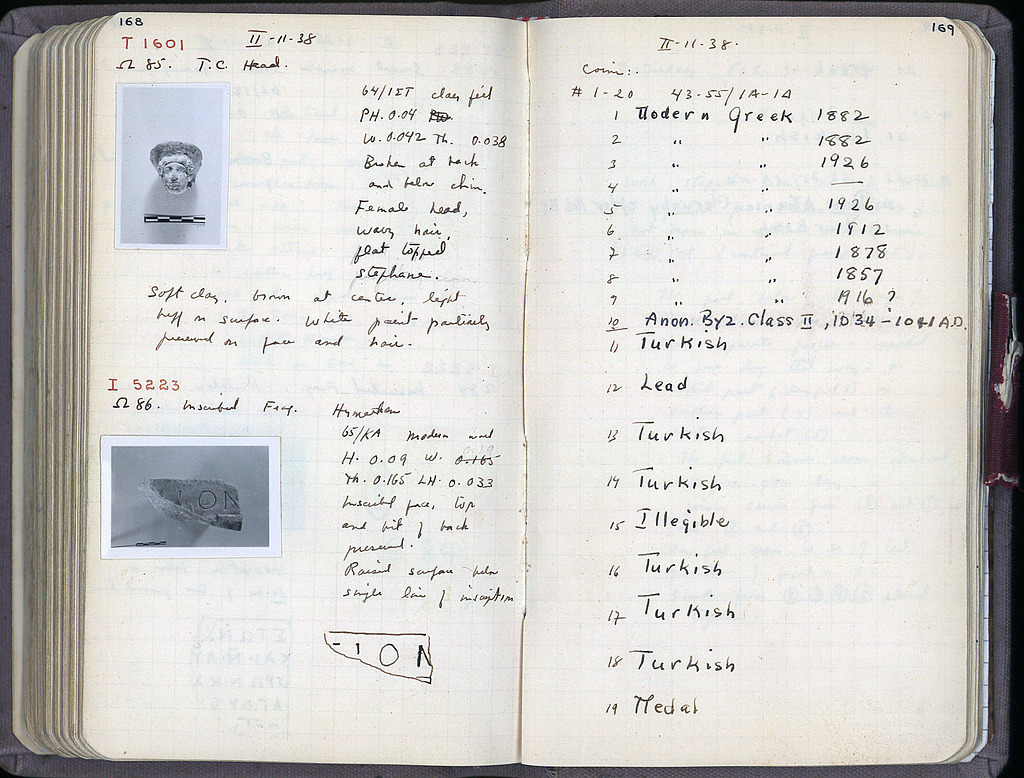 168
T 1601
II-11-38
Ω 85. T.C. Head.
64/ΙΣΤ clay pit
PH. 0.04
W. 0.042 Th. 0.038
Broken at back
and below chin.
Female head,
wavy hair,
flat topped
stephane.
Soft clay, brown at centre, light
buff on surface. White paint partially
preserved on face and hair.
I 5223
Ω 86. Inscribed Frag. Hymettian
65/ΚΑ modern wall
H. 0.09 W. 0.165
Th. 0.165 LH. 0.033
Inscribed face, top
and bit of back
preserved.
Raised surface below
single line of inscription
I O N
169
II-11-38.
Coins:
# 1-20 43-55/ΙΑ-ΙΔ
1 Modern Greek 1882
2 " " 1882
3 " " 1926
4 " " —
5 " " 1926
6 " " 1912
7 " " 1878
8 " " 1857
9 " " 1916 ?
10 Anon. Byz. Class II, 1034-1041 A.D.
11 Turkish
12 Lead
13 Turkish
14 Turkish
15 Illegible
16 Turkish
17 Turkish
18 Turkish
19 Medal